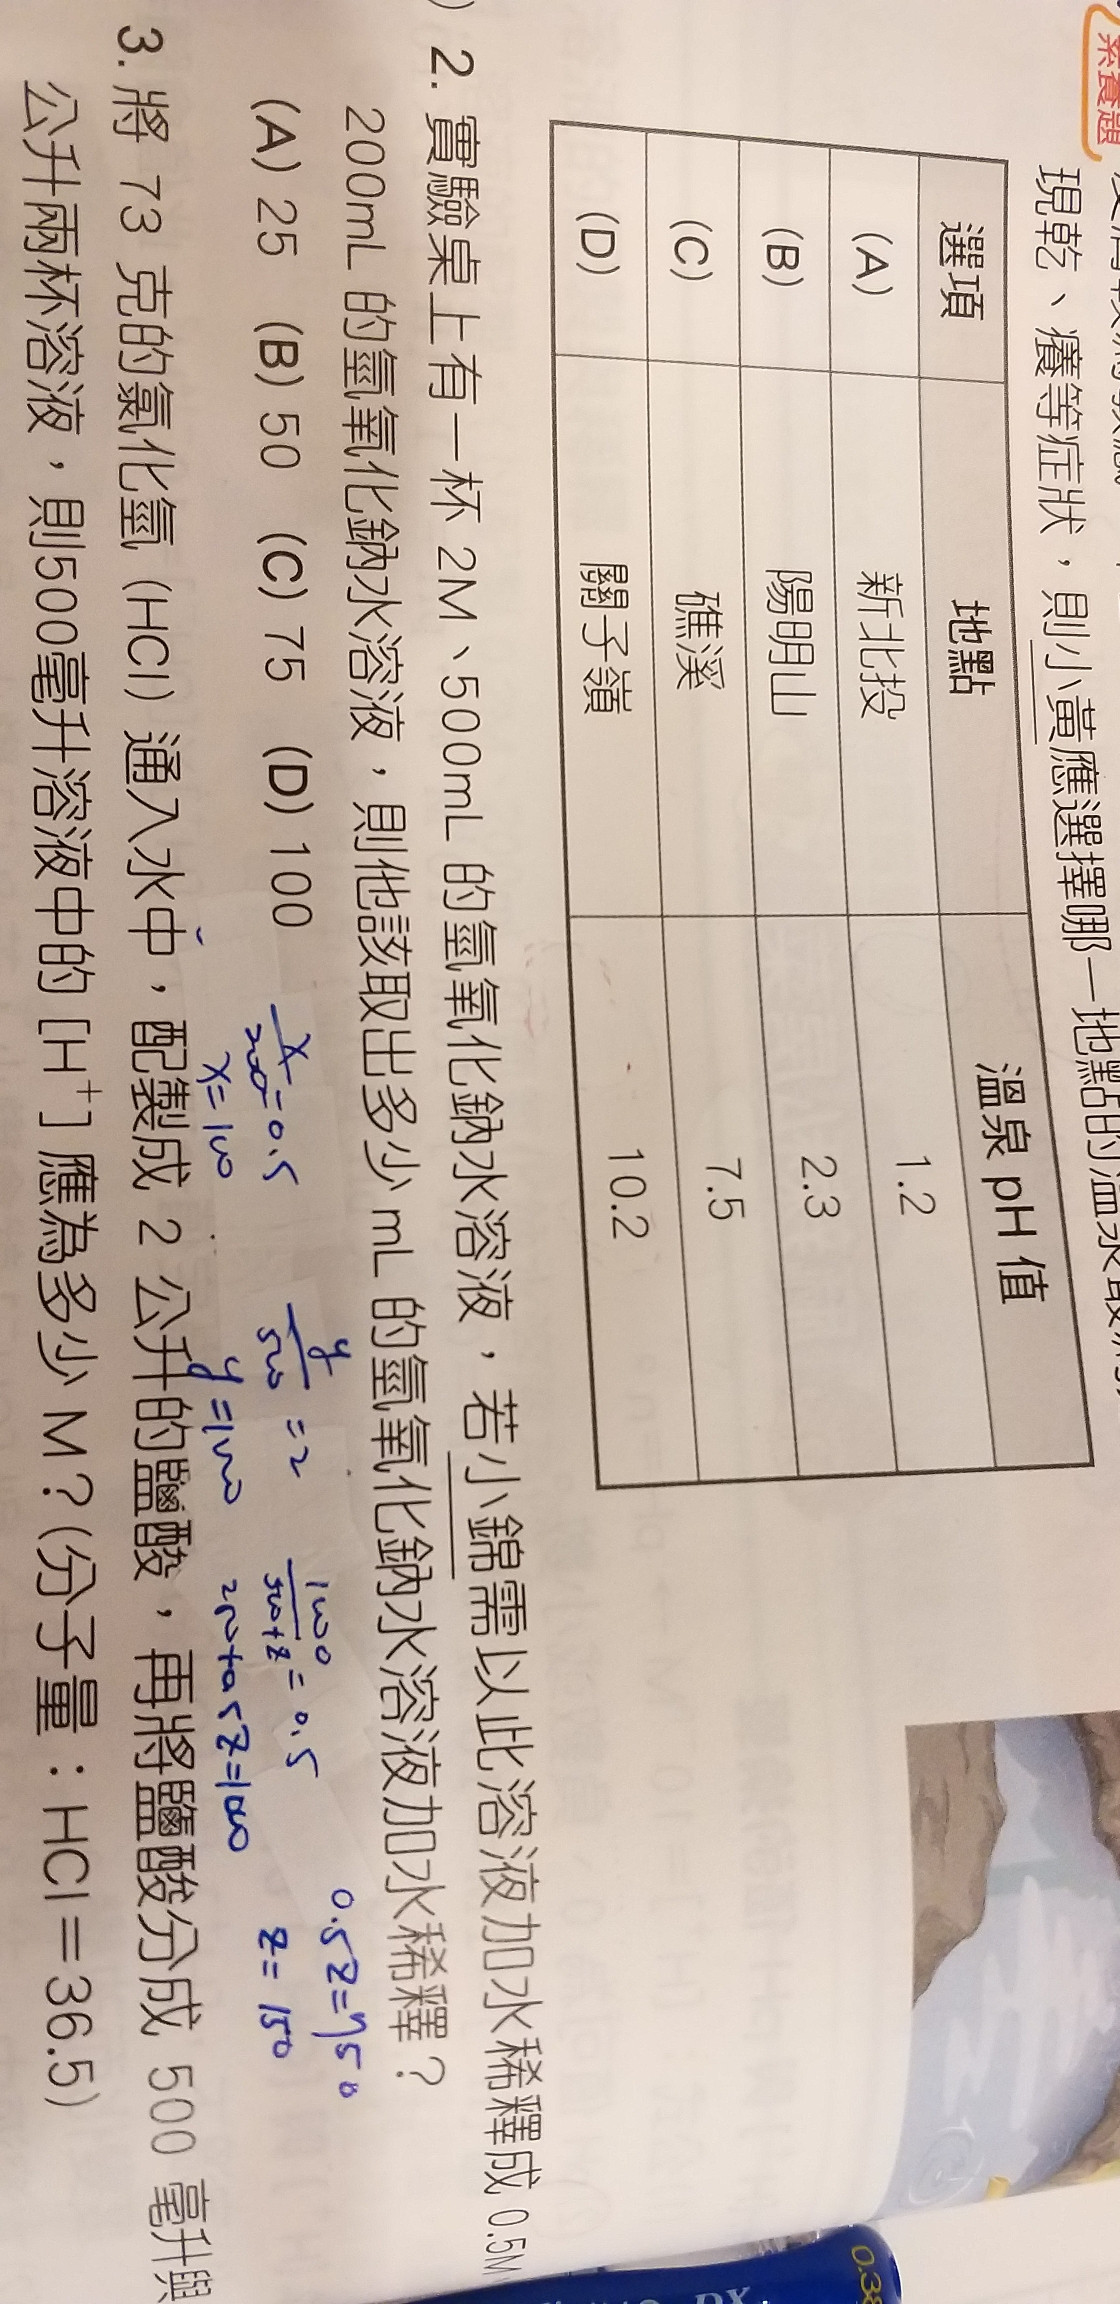 素養題
現乾、癢等症狀，則小黃應選擇哪一地點的溫泉
選項 地點 溫泉 pH 值
(A) 新北投 1.2
(B) 陽明山 2.3
(C) 礁溪 7.5
(D) 關子嶺 10.2
) 2. 實驗桌上有一杯 2M、500mL 的氫氧化鈉水溶液，若小錦需以此溶液加水稀釋成 0.5M
200mL 的氫氧化鈉水溶液，則他該取出多少 mL 的氫氧化鈉水溶液加水稀釋？
(A) 25 (B) 50 (C) 75 (D) 100
x/200=0.5
x=100
y/500=2
y=1000
1000/500+z=0.5
250+0.5z=1000
0.5z=750
z=150
3. 將 73 克的氯化氫（HCl）通入水中，配製成 2 公升的鹽酸，再將鹽酸分成 500 毫升與
公升兩杯溶液，則500毫升溶液中的［H⁺］應為多少 M？(分子量：HCl＝36.5)
0.38